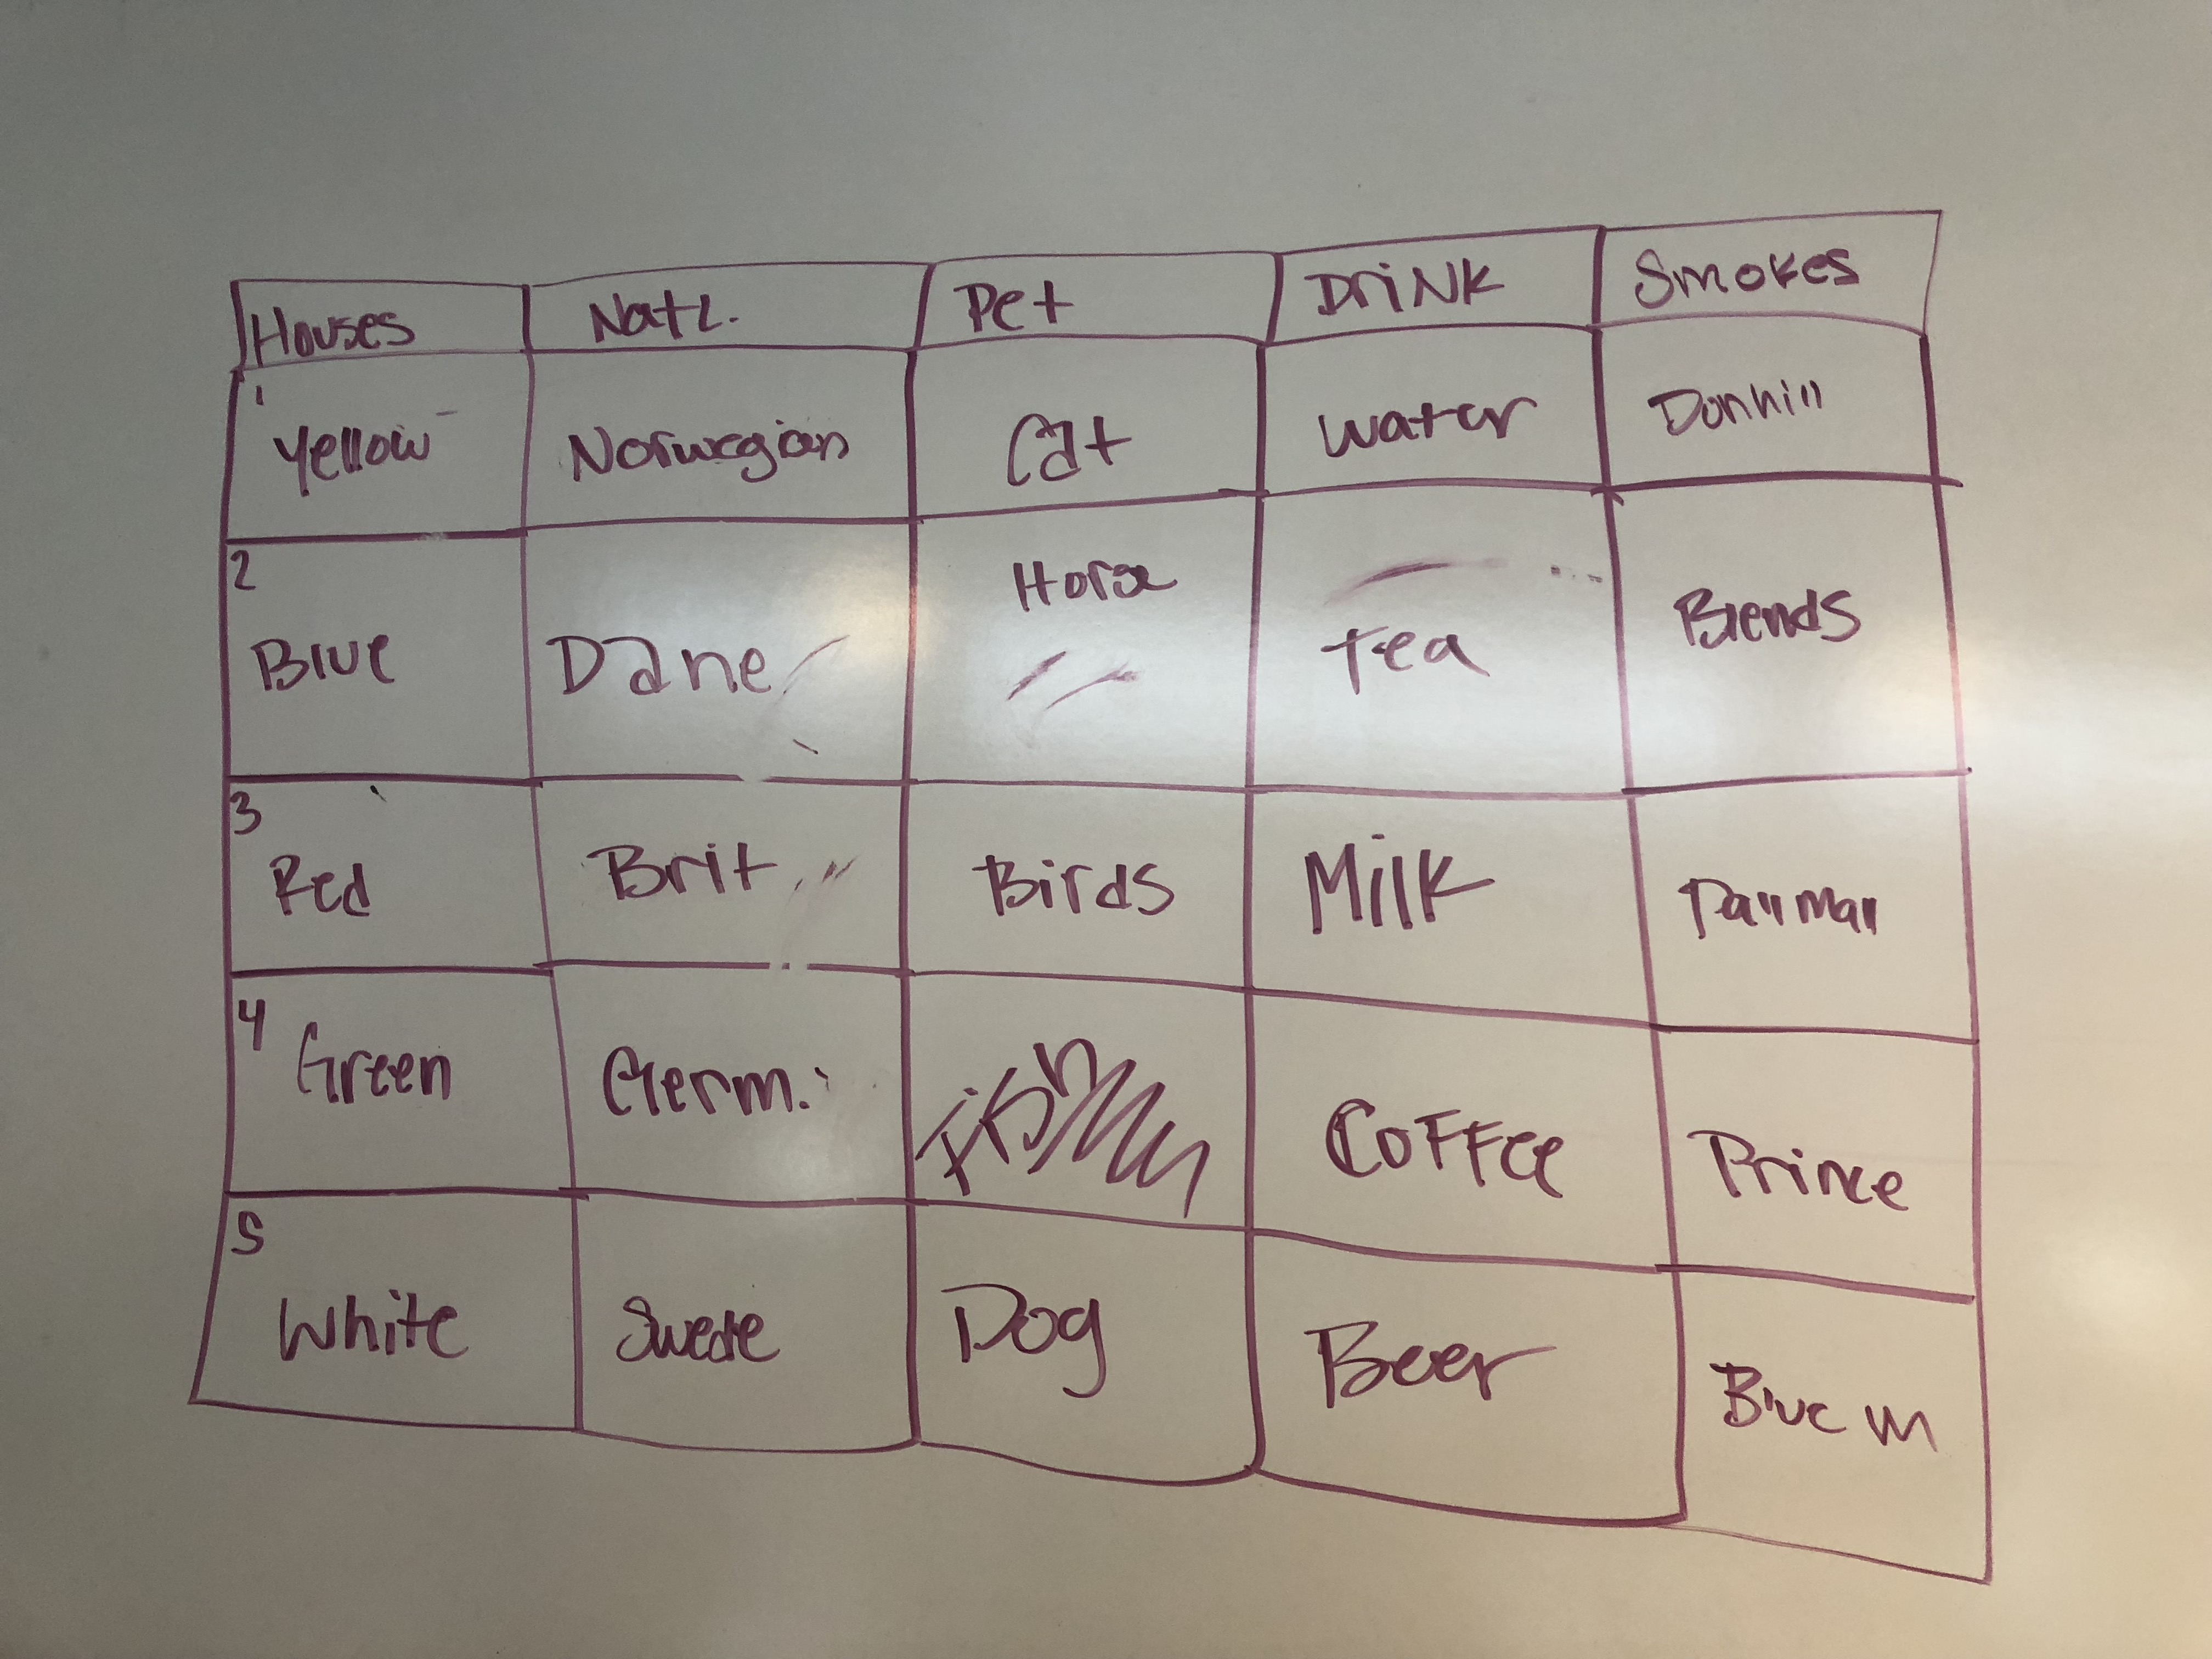 Houses Natl. Pet DriNK Smokes
1
Yellow Norwegian Cat Water Dunhill
2
Blue Dane Horse Tea Blends
3
Red Brit Birds Milk Pall Mall
4
Green Germ. Fish Coffee Prince
5
White Swede Dog Beer Blue M